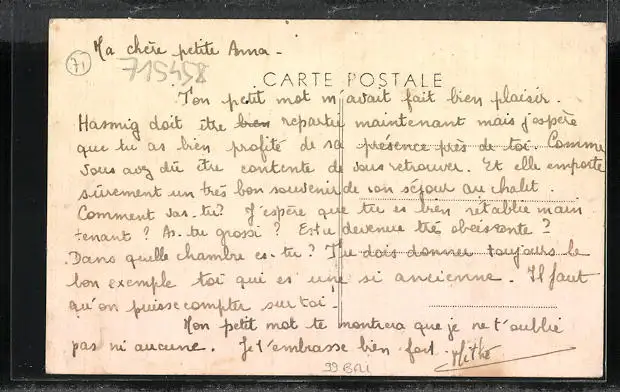 Ma chère petite Anna -
71
715458
CARTE POSTALE
Ton petit mot m'avait fait bien plaisir.
Hasmig doit être bien repartie maintenant mais j'espère
que tu as bien profité de sa présence près de toi. Comme
vous avez dû être contente de vous retrouver. Et elle emporte
sûrement un très bon souvenir de son séjour au chalet.
Comment vas-tu? J'espère que tu es bien rétablie main
tenant? As-tu grossi? Es tu devenue très obéissante?
Dans quelle chambre es-tu? Tu dois donner toujours le
bon exemple toi qui es une si ancienne. Il faut
qu'on puisse compter sur toi -
Mon petit mot te montrera que je ne t'oublie
pas ni aucune. Je t'embrasse bien fort.
99 BAL